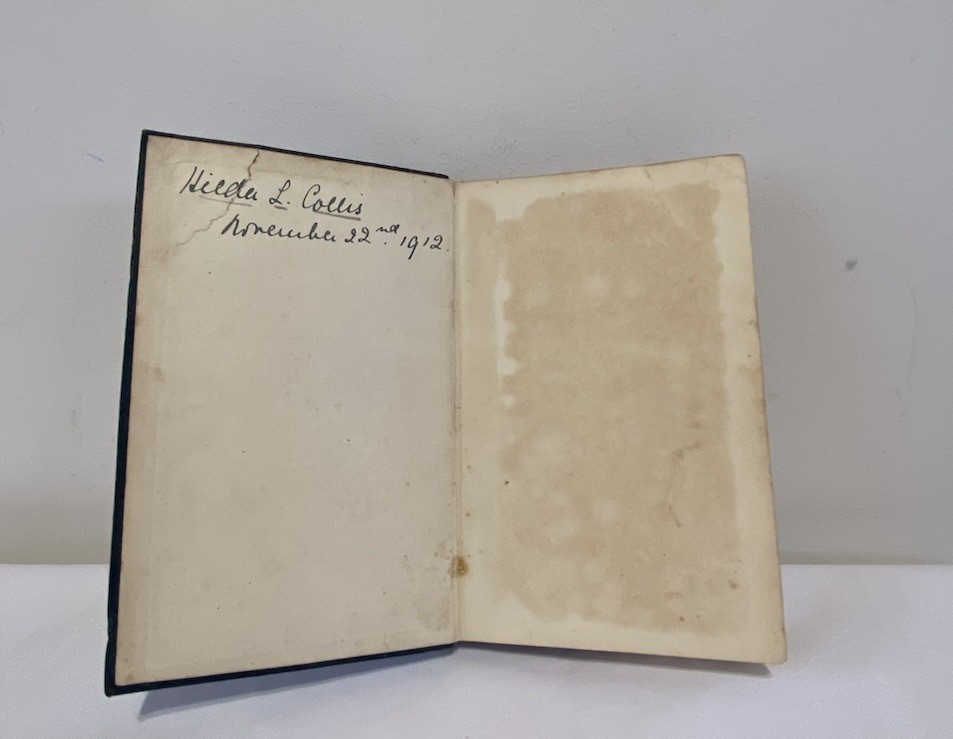 Hilda L. Collis
November 22nd. 1912.